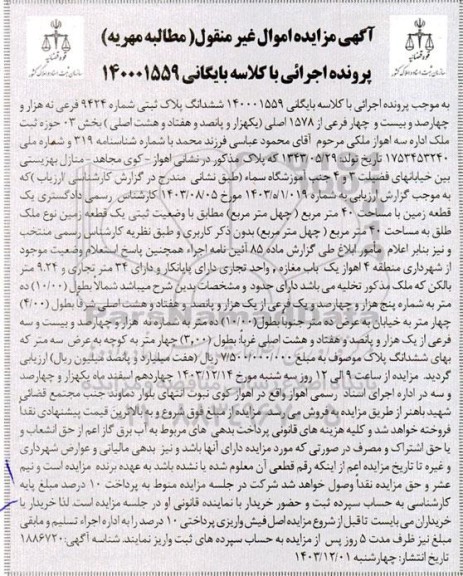 آگهی مزایده اموال غیر منقول( مطالبه مهریه)
پرونده اجرائی با کلاسه بایگانی ۱۴۰۰۰۱۵۵۹
به موجب پرونده اجرائی با کلاسه بایگانی ۱۴۰۰۰۱۵۵۹ ششدانگ پلاک ثبتی شماره ۹۴۲۴ فرعی نه هزار و
چهارصد و بیست و چهار فرعی از ۱۵۷۸ اصلی (یکهزار و پانصد و هفتاد و هشت اصلی ) بخش ۰۳ حوزه ثبت
ملک اداره سه اهواز ملکی مرحوم آقای محمود عباسی فرزند محمد با شماره شناسنامه ۳۱۹ و شماره ملی
۱۷۵۳۴۵۳۲۴۰ تاریخ تولد ۱۳۴۳/۰۵/۲۹ که پلاک مذکور در نشانی اهواز - کوی مجاهد - منازل بهزیستی
بین خیابانهای فضیلت ۳ و ۴ جنب آموزشگاه سماء (طبق نشانی مندرج در گزارش کارشناسی /ارزیاب )که
به موجب گزارش ارزیابی به شماره ۱۴۰۳/۵/۱/۰۱۹ مورخ ۱۴۰۳/۰۸/۰۵ کارشناس رسمی دادگستری یک
قطعه زمین با مساحت ۴۰ متر مربع ( چهل متر مربع) مطابق با وضعیت ثبتی یک قطعه زمین نوع ملک
طلق به مساحت ۴۰ متر مربع ( چهل متر مربع) بدون ذکر کاربری و طبق نظریه کارشناس رسمی منتخب
و نیز بنابر اعلام مأمور ابلاغ طی گزارش ماده ۸۵ آئین نامه اجرا، همچنین پاسخ استعلام وضعیت موجود
از شهرداری منطقه ۴ اهواز یک باب مغازه ، واحد تجاری دارای پایانکار و دارای ۳۴ متر تجاری و ۹.۲۴ متر
بالکن که ملک مذکور تخلیه می باشد دارای حدود و مشخصات بدین شرح میباشد شمالاً بطول (۱۰/۰۰) ده
متر به شماره پنج هزار و چهارصد و یک فرعی از یک هزار و پانصد و هفتاد و هشت اصلی شرقاً بطول (۴/۰۰)
چهار متر به خیابان به عرض ده متر جنوباً بطول(۱۰/۰۰) ده متر به شماره نه هزار و چهارصد و بیست و سه
فرعی از یک هزار و پانصد و هفتاد و هشت اصلی غرباً بطول (۴/۰۰) چهار متر به کوچه به عرض سه متر که
بهای ششدانگ پلاک موصوف به مبلغ ۷/۵۰۰/۰۰۰/۰۰۰ ریال (هفت میلیارد و پانصد میلیون ریال) ارزیابی
گردید. مزایده از ساعت ۹ الی ۱۲ روز سه شنبه مورخ ۱۴۰۳/۱۲/۱۴ چهاردهم اسفند ماه یکهزار و چهارصد
و سه در اداره اجرای اسناد رسمی اهواز واقع در اهواز کوی نبوت انتهای بلوار دماوند جنب مجتمع قضائی
شهید باهنر از طریق مزایده به فروش می رسد. مزایده از مبلغ فوق شروع و به بالاترین قیمت پیشنهادی نقداً
فروخته خواهد شد و کلیه هزینه های قانونی پرداخت بدهی های مربوط به آب برق گاز اعم از حق انشعاب و
یا حق اشتراک و مصرف در صورتی که مورد مزایده دارای آنها باشد و نیز بدهی مالیاتی و عوارض شهرداری
و غیره تا تاریخ مزایده اعم از اینکه رقم قطعی آن معلوم شده یا نشده باشد به عهده برنده مزایده است و نیم
عشر و حق مزایده نقداً وصول خواهد شد شرکت در جلسه مزایده منوط به پرداخت ۱۰ درصد مبلغ پایه
کارشناسی به حساب سپرده ثبت و حضور خریدار یا نماینده قانونی او در جلسه مزایده است. لذا خریدار یا
خریداران می بایست تاقبل از شروع مزایده اصل فیش واریزی پرداختی ۱۰ درصد را به اداره اجراء تسلیم و مابقی
مبلغ نیز ظرف مدت ۵ روز پس از مزایده به حساب سپرده های ثبت واریز نمایند. شناسه آگهی:۱۸۸۶۷۲۰
تاریخ انتشار: چهارشنبه ۱۴۰۳/۱۲/۰۱